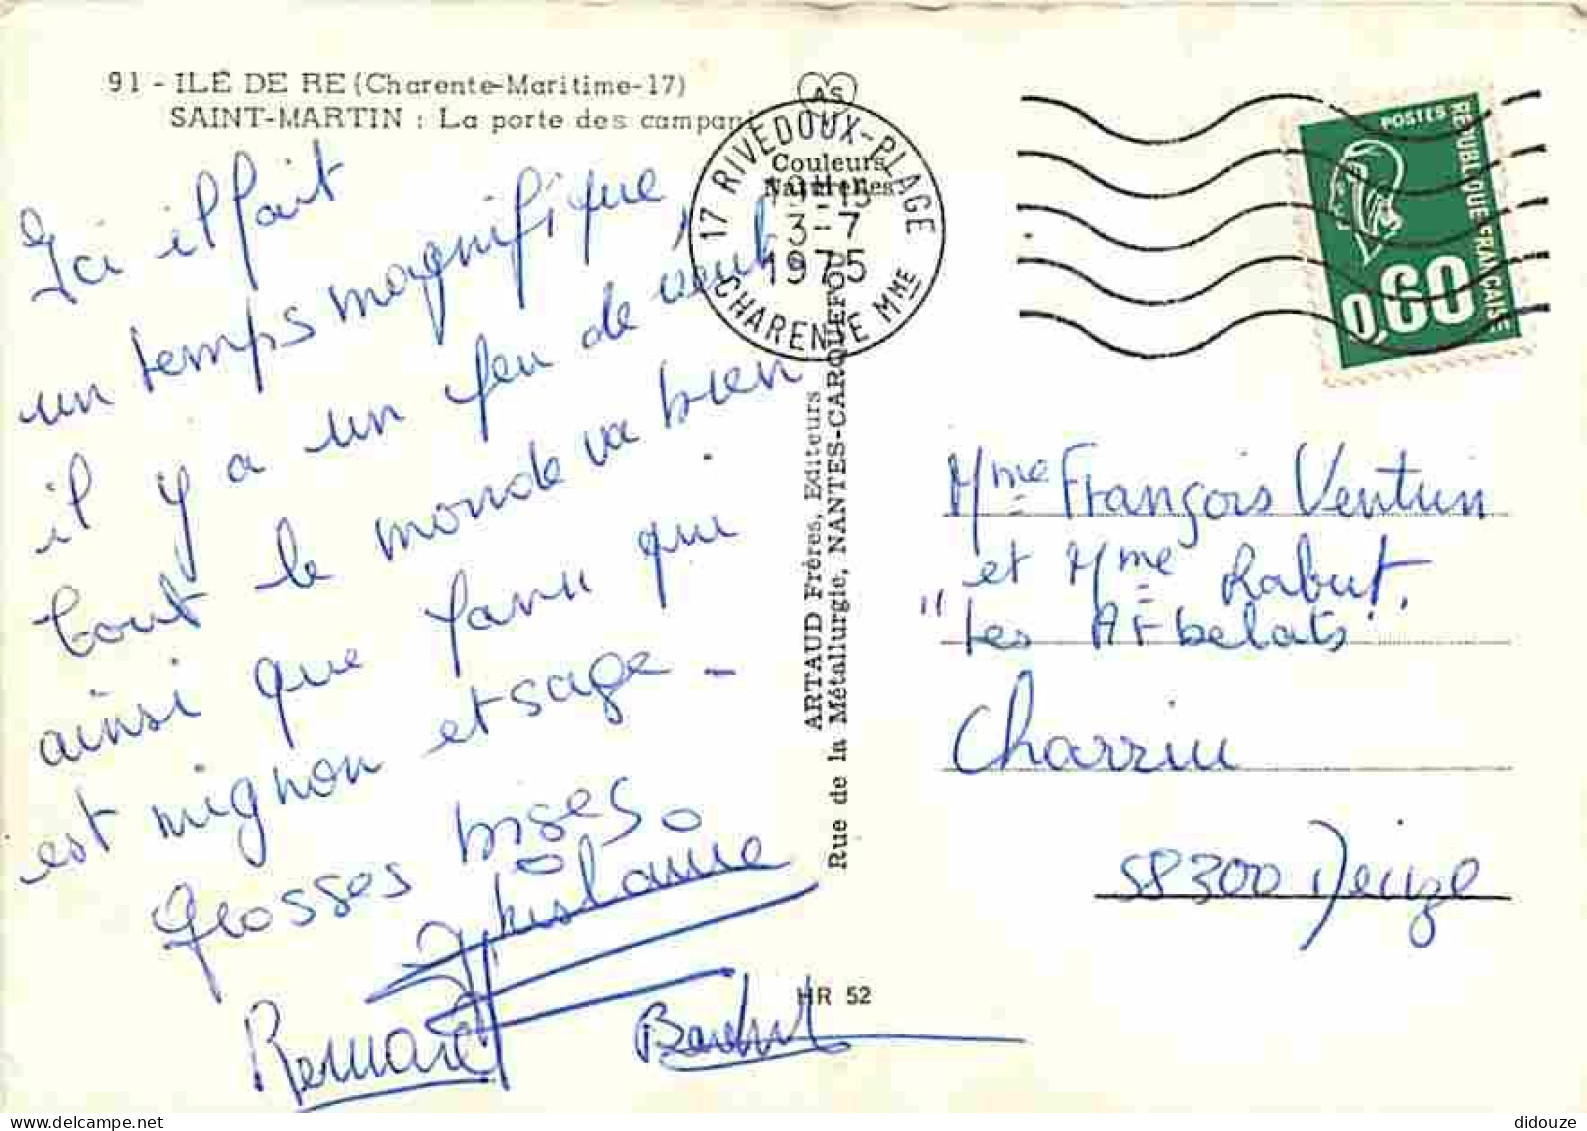 91 - ILE DE RE (Charente-Maritime-17)
SAINT-MARTIN : La porte des campani
AS
Couleurs
Naturelles
17 RIVEDOUX-PLAGE
3-7
1975
CHARENTE MME
POSTES
REPUBLIQUE FRANÇAISE
0,60
Ici il fait
un temps magnifique,
il y a un peu de vent,
tout le monde va bien
ainsi que Yann qui
est mignon et sage -
Grosses bises.
Ghislaine
Bernard
ARTAUD Frères, Editeurs
Rue de la Métallurgie, NANTES-CARQUEFOU
Mme François Ventrin
et Mme Rabut,
"Les Arbelats"
Charrin
58300 Decize
HR 52
didouze